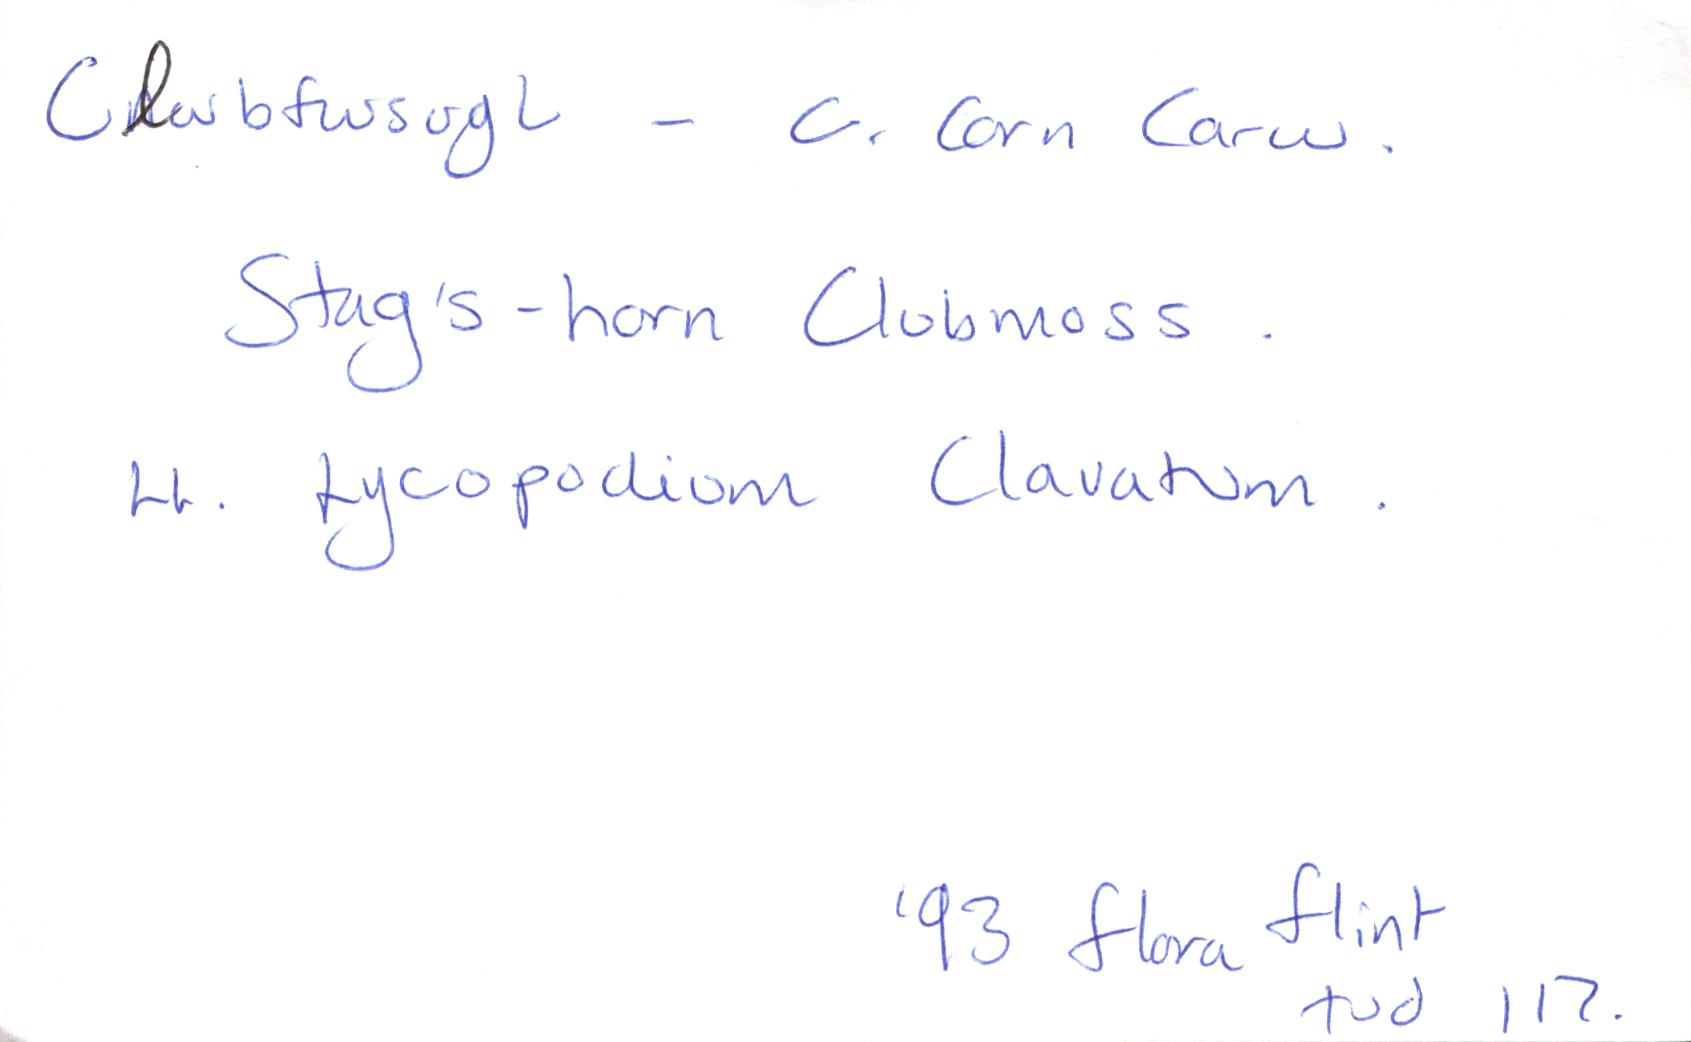 Clwbfwsogl - C. Corn Carw.
Stag's-horn Clubmoss.
Ll. Lycopodium Clavatum.
'93 flora flint
tud 117.